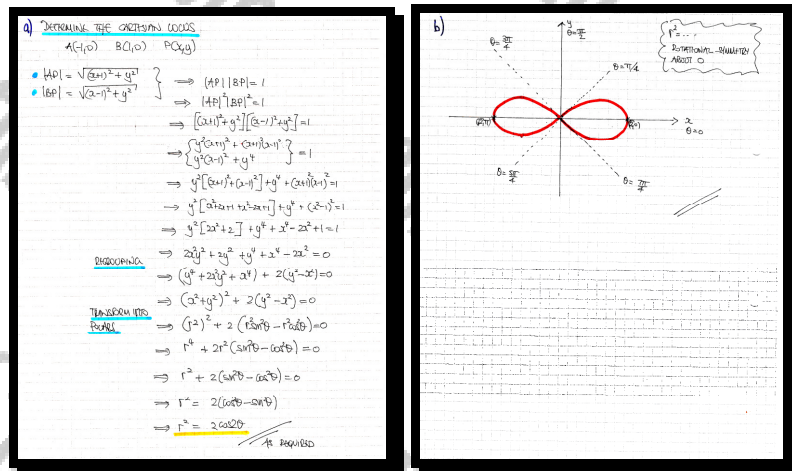 a) DETERMINE THE CARTESIAN LOCUS
A(-1,0) B(1,0) P(x,y)
|AP| = √((x+1)² + y²)
|BP| = √((x-1)² + y²)
⇒ |AP||BP| = 1
⇒ |AP|²|BP|² = 1
⇒ [(x+1)² + y²][(x-1)² + y²] = 1
⇒ { y²(x+1)² + (x+1)²(x-1)²
y²(x-1)² + y⁴ } = 1
⇒ y²[(x+1)² + (x-1)²] + y⁴ + (x+1)²(x-1)² = 1
⇒ y²[x²+2x+1 + x²-2x+1] + y⁴ + (x²-1)² = 1
⇒ y²[2x²+2] + y⁴ + x⁴ - 2x² + 1 = 1
⇒ 2x²y² + 2y² + y⁴ + x⁴ - 2x² = 0
REGROUPING
⇒ (y⁴ + 2x²y² + x⁴) + 2(y² - x²) = 0
⇒ (x² + y²)² + 2(y² - x²) = 0
TRANSFORM INTO
POLARS
⇒ (r²)² + 2(r²sin²θ - r²cos²θ) = 0
⇒ r⁴ + 2r²(sin²θ - cos²θ) = 0
⇒ r² + 2(sin²θ - cos²θ) = 0
⇒ r² = 2(cos²θ - sin²θ)
⇒ r² = 2cos2θ
AS REQUIRED
b)
y
θ = π/2
θ = 3π/4
θ = π/4
r² = ...
ROTATIONAL SYMMETRY
ABOUT O
x
θ = 0
θ = 5π/4
θ = 7π/4